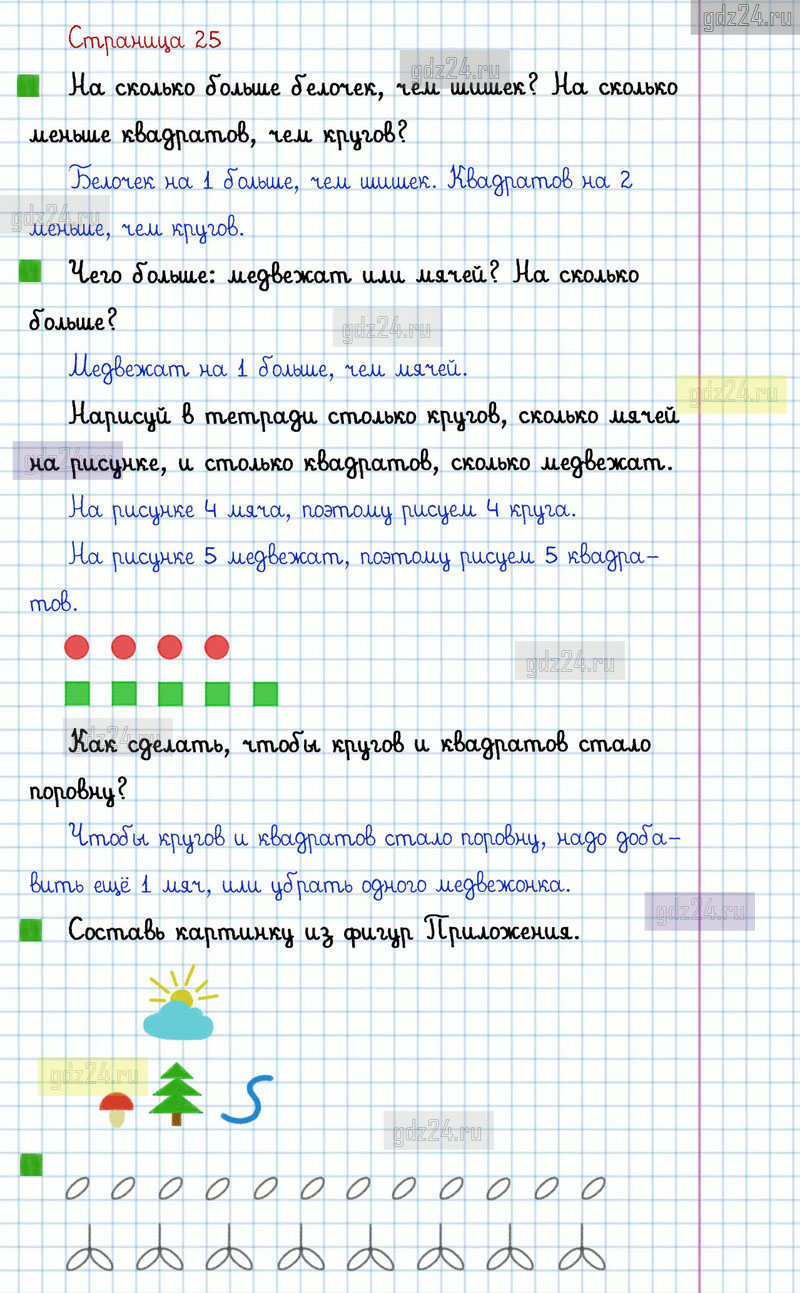 gdz24.ru
Страница 25
gdz24.ru
На сколько больше белочек, чем шишек? На сколько
меньше квадратов, чем кругов?
Белочек на 1 больше, чем шишек. Квадратов на 2
gdz24.ru
меньше, чем кругов.
Чего больше: медвежат или мячей? На сколько
больше?
gdz24.ru
Медвежат на 1 больше, чем мячей.
gdz24.ru
Нарисуй в тетради столько кругов, сколько мячей
gdz24.ru
на рисунке, и столько квадратов, сколько медвежат.
На рисунке 4 мяча, поэтому рисуем 4 круга.
На рисунке 5 медвежат, поэтому рисуем 5 квадра-
тов.
gdz24.ru
gdz24.ru
Как сделать, чтобы кругов и квадратов стало
поровну?
Чтобы кругов и квадратов стало поровну, надо доба-
вить ещё 1 мяч, или убрать одного медвежонка.
gdz24.ru
Составь картинку из фигур Приложения.
gdz24.ru
gdz24.ru